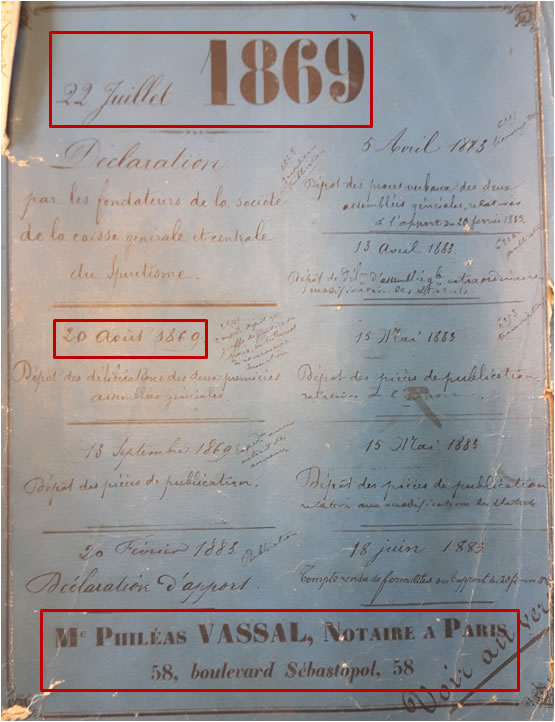 22 Juillet 1869
Déclaration
par les fondateurs de la société
de la caisse générale et centrale
du Spiritisme.
20 Août 1869
Dépôt des délibérations des deux premières
assemblées générales.
13 Septembre 1869
Dépôt des pièces de publication.
20 Février 1883
Publication
Déclaration d'apport.
5 Avril 1883
Dépôt des procès verbaux des deux
assemblées générales, relatives
à l'apport du 20 février 1883.
13 Avril 1883
Dépôt de d'assemblée extraordinaire
modification les statuts
15 Mai 1883
Dépôt des pièces de publication
relatives à
15 Mai 1883
Dépôt des pièces de publication
relatives aux modifications des Statuts
18 juin 1883
Compte rendu de formalités sur l'apport du 20 f
Me PHILÉAS VASSAL, NOTAIRE A PARIS
58, boulevard Sébastopol, 58
Voir au ver